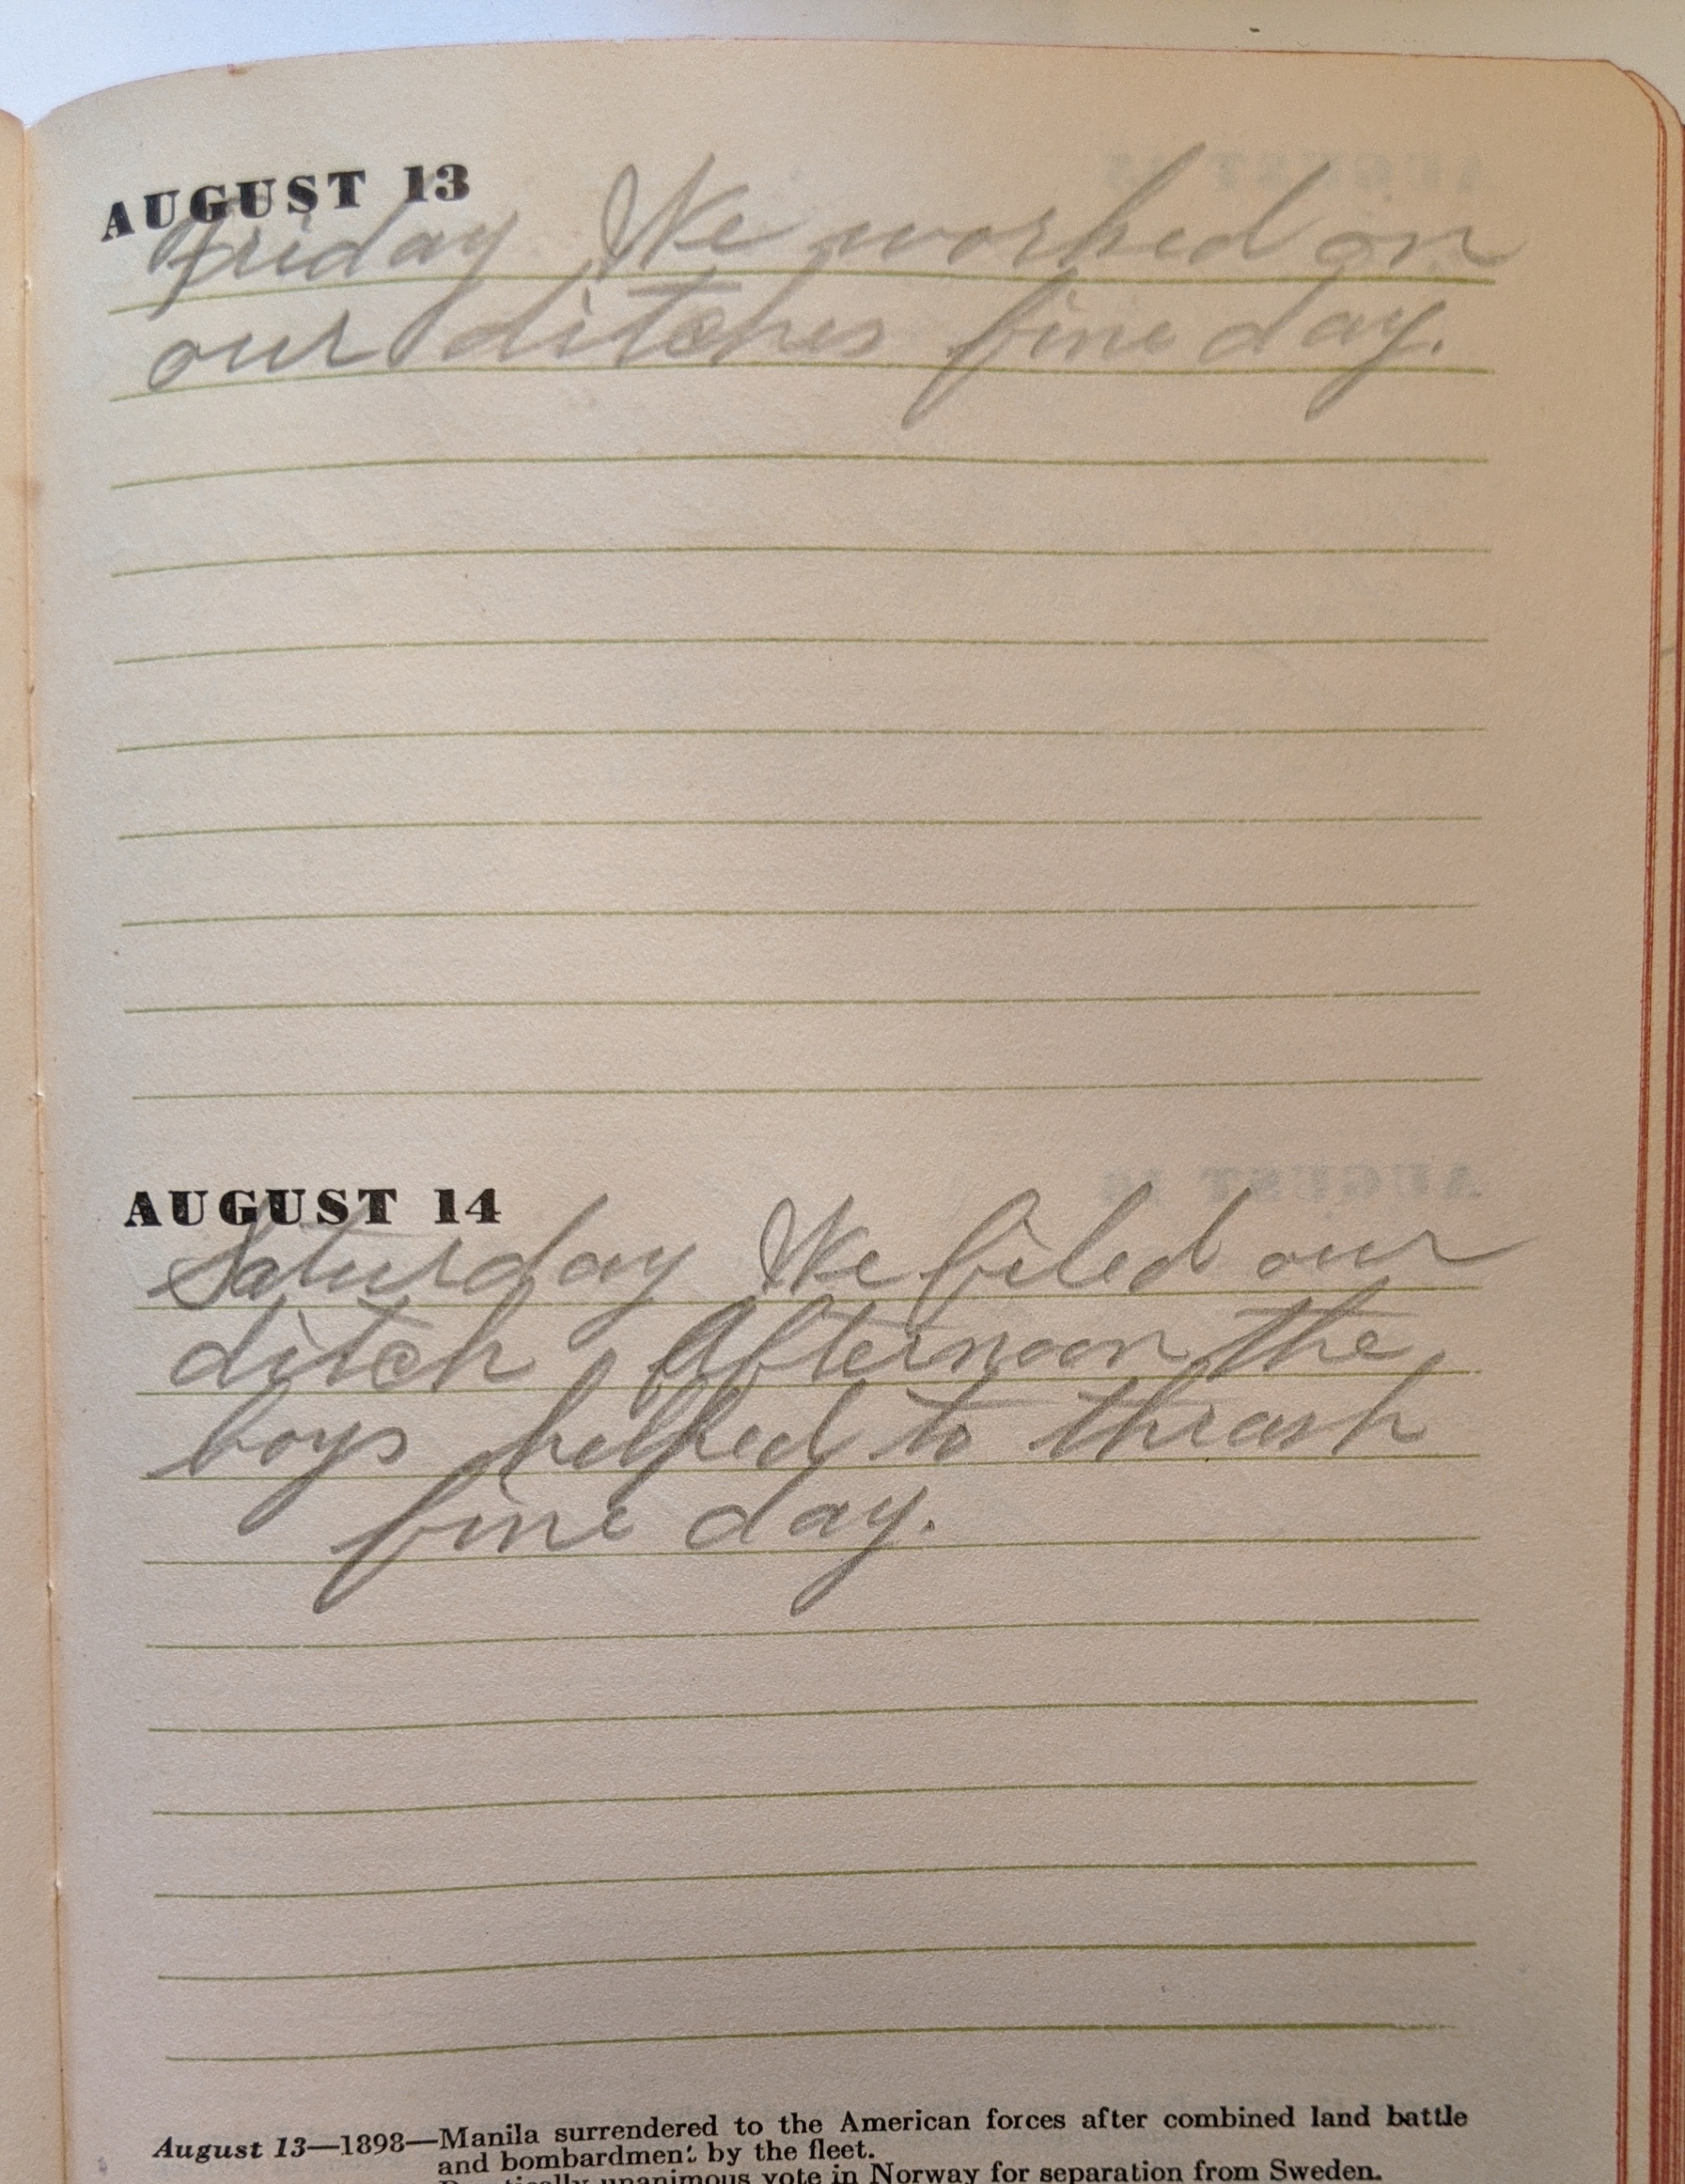 AUGUST 13
Friday We worked on
our ditches fine day.
AUGUST 14
Saturday We filed our
ditch Afternoon the
boys helped to thrash
fine day.
August 13—1898—Manila surrendered to the American forces after combined land battle
and bombardment by the fleet.
unanimous vote in Norway for separation from Sweden.